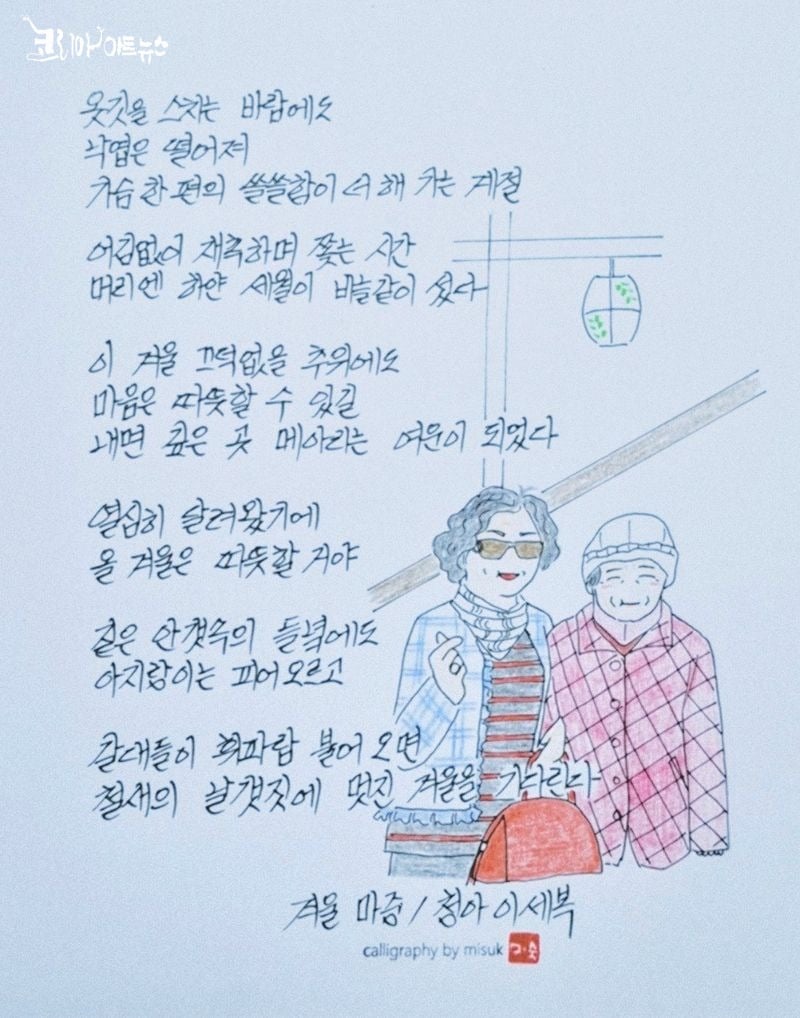 코리아아트뉴스
옷깃을 스치는 바람에도
낙엽은 떨어져
가슴 한 편의 쓸쓸함이 더해 가는 계절
어김없이 재촉하며 쫓는 시간
머리엔 하얀 세월이 바늘같이 섰다
이 겨울 끄떡없을 추위에도
마음은 따뜻할 수 있길
내면 깊은 곳 메아리는 여운이 되었다
열심히 달려왔기에
올 겨울은 따뜻할 거야
짙은 안갯속의 들녘에도
아지랑이는 피어오르고
갈대들이 휘파람 불어 오면
철새의 날갯짓에 멋진 겨울을 기다린다
겨울 마중 / 청아 이세복
calligraphy by misuk